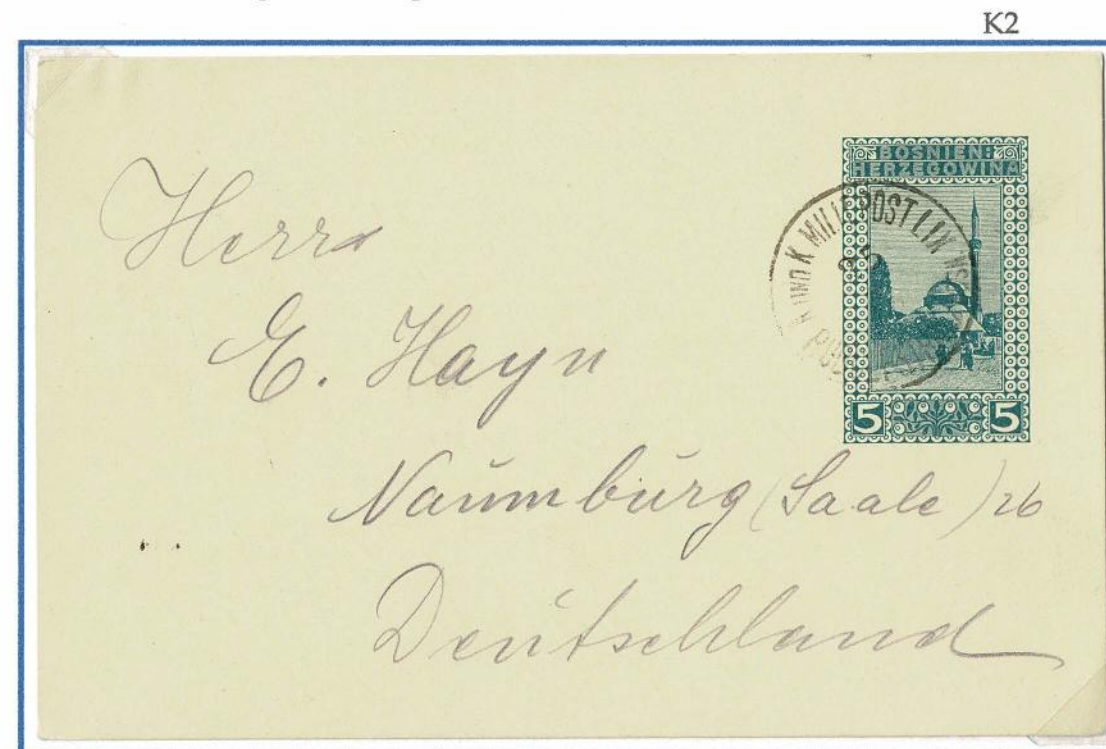 K2
BOSNIEN-
HERZEGOWINA
K UND K MILIT. POST LIX
5 5
Herrn
E. Hayn
Naumburg (Saale) 26
Deutschland